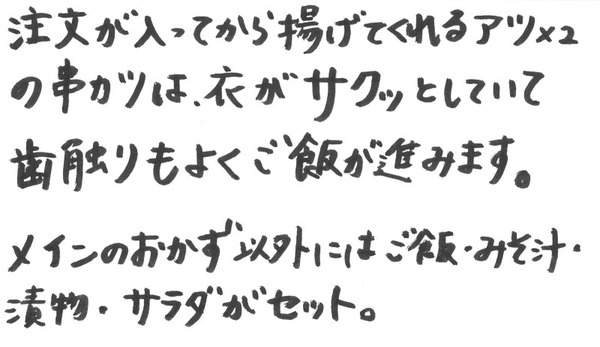 注文が入ってから揚げてくれるアツ×2
の串カツは、衣がサクッとしていて
歯触りもよくご飯が進みます。
メインのおかず以外にはご飯・みそ汁・
漬物・サラダがセット。